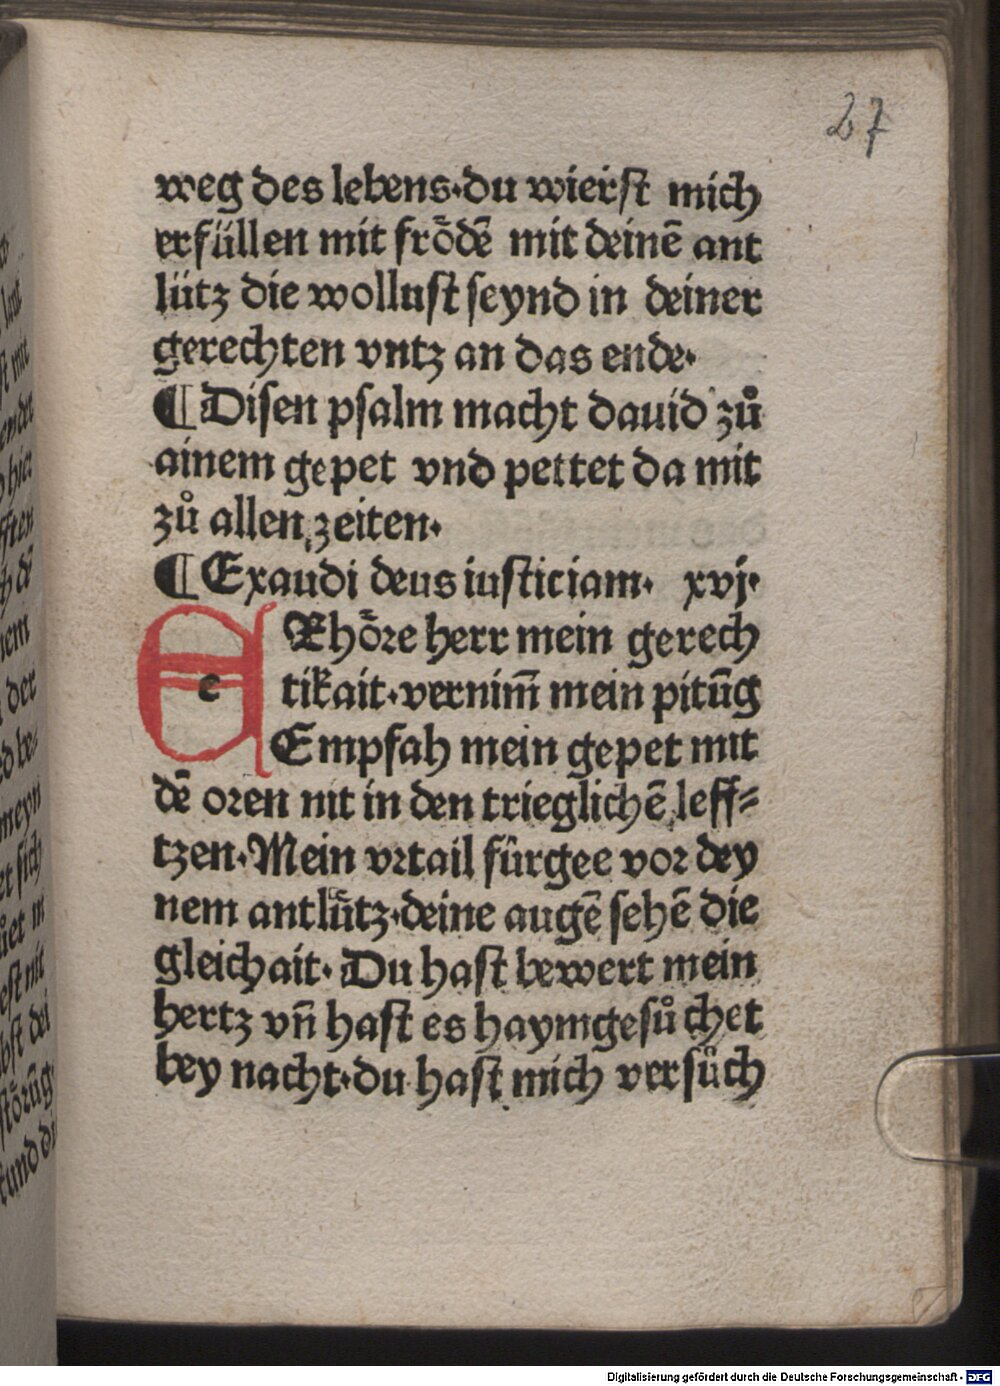 27
weg des lebens·du wierst mich
erfüllen mit frödē mit deinē ant
lütz die wollust seynd in deiner
gerechten vntz an das ende·
¶ Disen psalm macht dauid zů
ainem gepet vnd pettet da mit
zů allen zeiten·
¶ Exaudi deus iusticiam· xvj·
e Rhöre herr mein gerech
tikait·vernim̄ mein pitūg
Empfah mein gepet mit
dē oren nit in den trieglichē leff⸗
tzen·Mein vrtail fürgee vor dey
nem antlütz·deine augē sehē die
gleichait· Du hast bewert mein
hertz vn̄ hast es haymgesůchet
bey nacht·du hast mich versůch
Digitalisierung gefördert durch die Deutsche Forschungsgemeinschaft - DFG